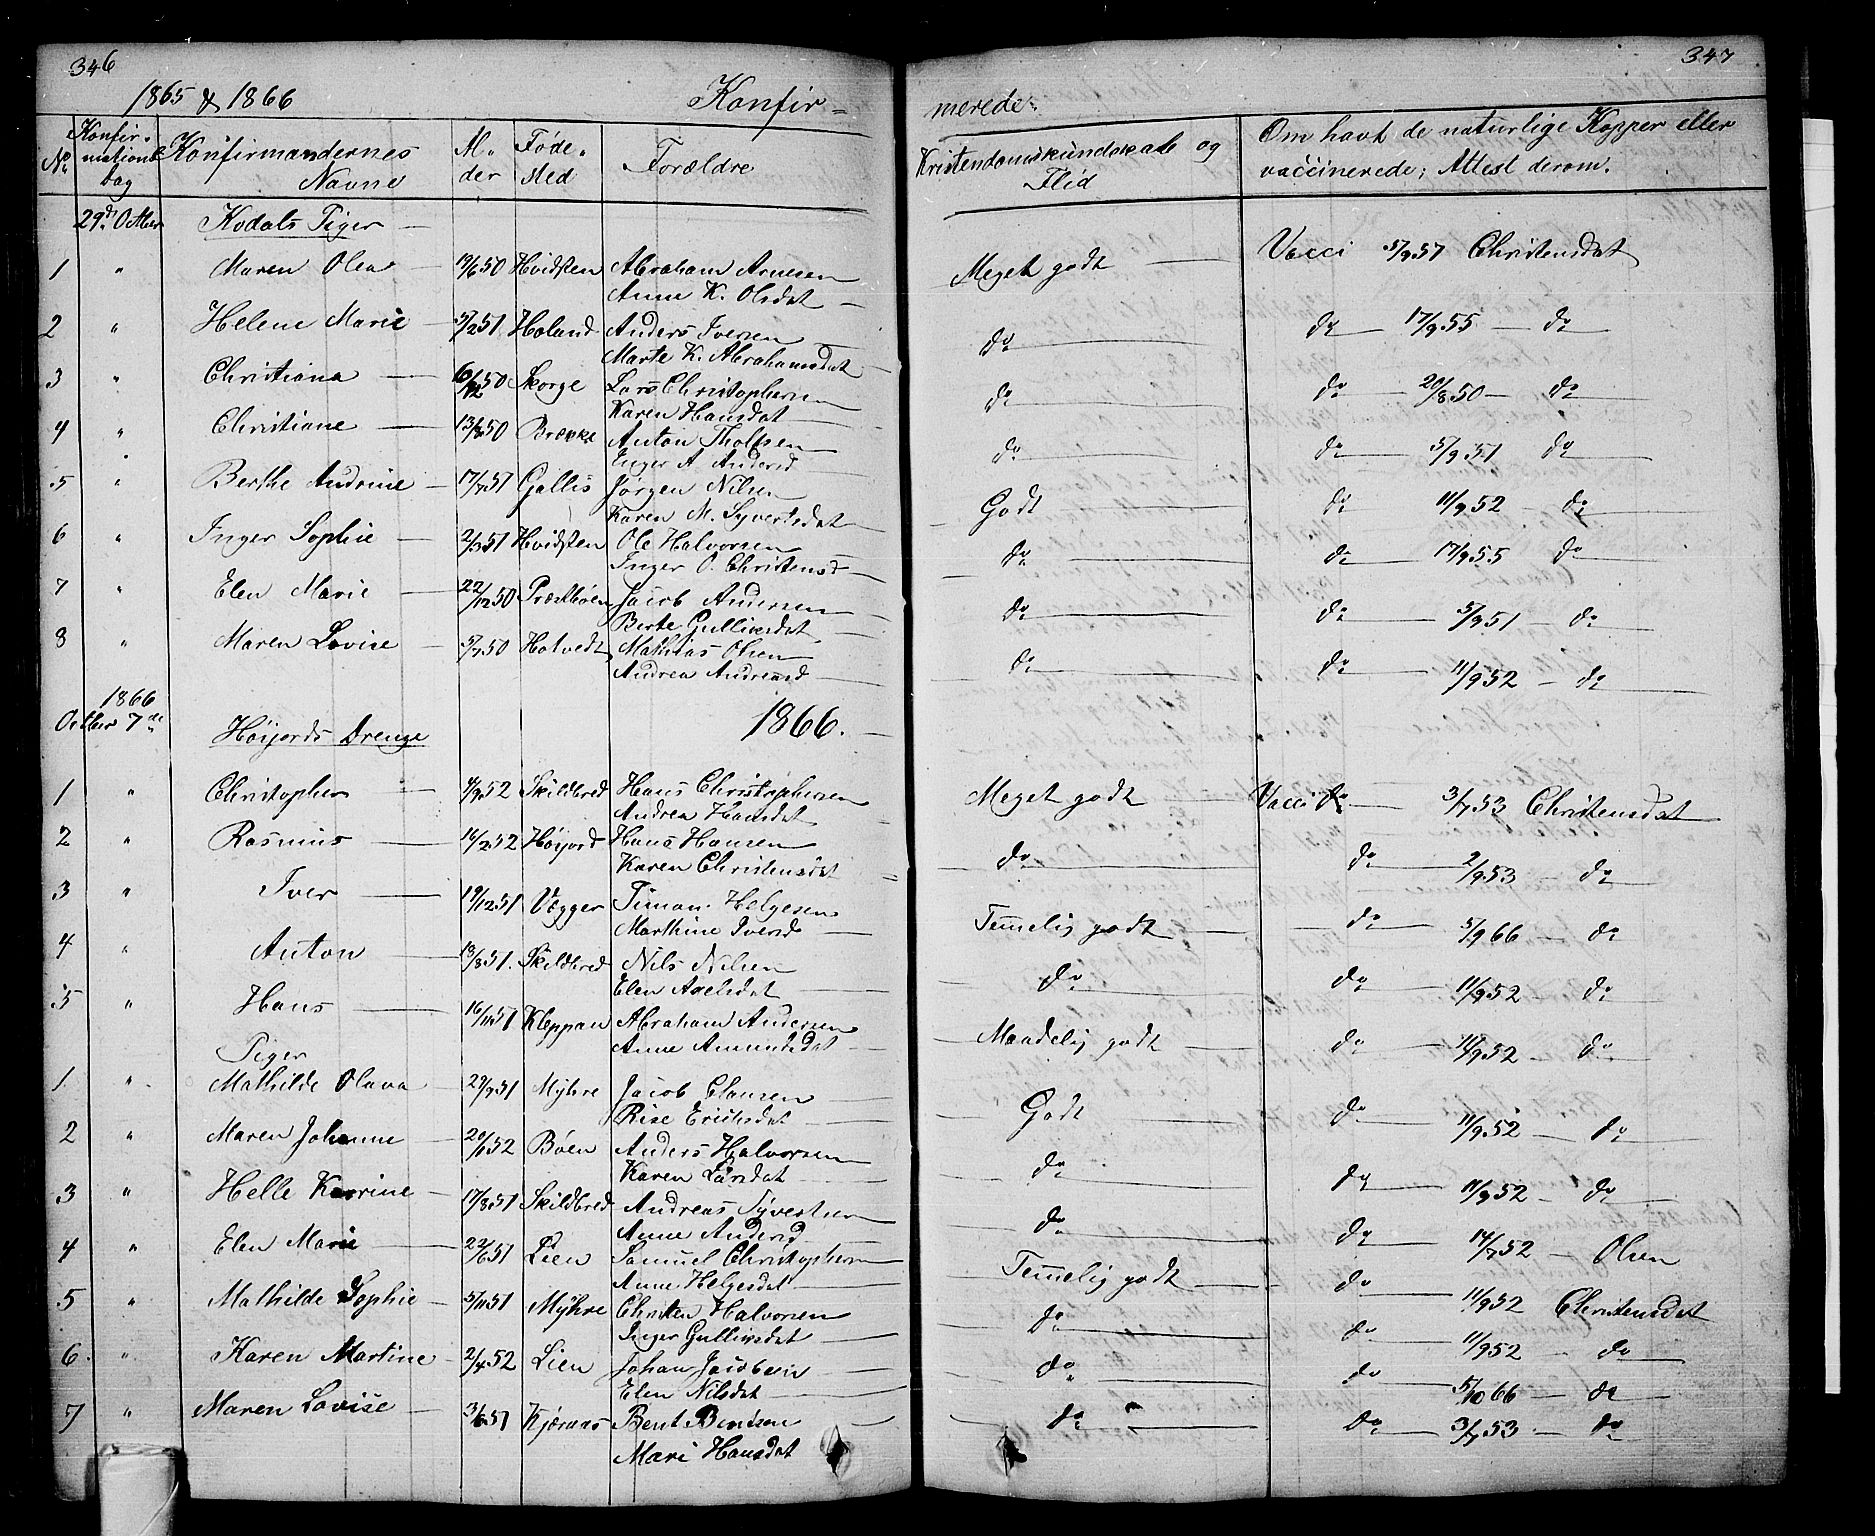 346
347
1865 & 1866 Konfir=
merede.
No Konfirmations Dag Konfirmandernes Navne Alder Fødested Forældre Kristendomskundskab og Flid Om havt de naturlige Kopper eller vaccinerede; Attest derom.
29de Octber Kodals Piger
1 " Maren Olea 50 Hvidsten Abraham Arnesen Meget godt Vacci 5/9 51 Christensdat
Anne K. Olsdat
2 " Helene Marie 5/2 51 Holand Anders Iversen do do 17/9 55 do
Marte K. Abrahamsdat
3 " Christiana 50 Skorge Lars Christophersen do do 20/8 50 do
Karen Hansdat
4 " Christiane 50 Brække Anton Tholfsen do do 5/9 51 do
Inger A. Andersd
5 " Berthe Andrine 17/7 51 Gallis Jørgen Nilsen Godt do 11/9 52 do
Karen M. Syvertsdat
6 " Inger Sophie 51 Hvidsten Ole Halvorsen do do 17/9 55 do
Inger O. Christensd
7 " Elen Marie 22/12 50 Præstbøen Jacob Andersen do do 5/9 51 do
Berte Gulliksdat
8 " Maren Lovise 5/7 50 Holvedt Mathias Olsen do do 11/9 52 do
Andrea Andreasd
1866
Octber 7de Høijords Drenge 1866.
1 " Christopher 4/9 52 Skildbred Hans Christophersen Meget godt Vacci do 3/7 53 Christensdat
Andrea Hansdat
2 " Rasmus 16/2 52 Høijord Hans Hansen do do 2/9 53 do
Karen Christensdat
3 " Iver 19/12 51 Vegger Timan Helgesen Temmelig godt do 5/9 66 do
Marthine Iversd
4 " Anton 13/8 51. Skildbred Nils Nilsen do do 11/9 52 do
Elen Axelsdat
5 " Hans 16/11 51 Kleppan Abraham Andersen Maadelig godt do 11/9 52 do
Anne Amundsdat
Piger
1 " Mathilde Olava 29/9 51 Myhre Jacob Clausen Godt do 11/9 52 do
Rise Ericksdat
2 " Maren Johanne 20/1 52 Bøen Anders Halvorsen do do 11/9 52 do
Karen Larsdat
3 " Helle Karine 17/8 51 Skildbred Andreas Syvertsen do do 14/7 52 Olsen
Anne Andersd
4 " Elen Marie 22/6 51 Lien Samuel Christophersen Temmelig godt do 11/9 52 Christensdat
Anne Helgesdat
5 " Mathilde Sophie 5/11 51 Myhre Christen Halvorsen do do 11/9 52 do
Inger Gulliksdat
6 " Karen Martine 2/4 52 Lien Johan Jacobsen do do 5/10 66 do
Elen Nilsdat
7 " Maren Lovise 3/6 51 Kjæraas Bent Bentsen do do 3/7 53 do
Mari Hansdat